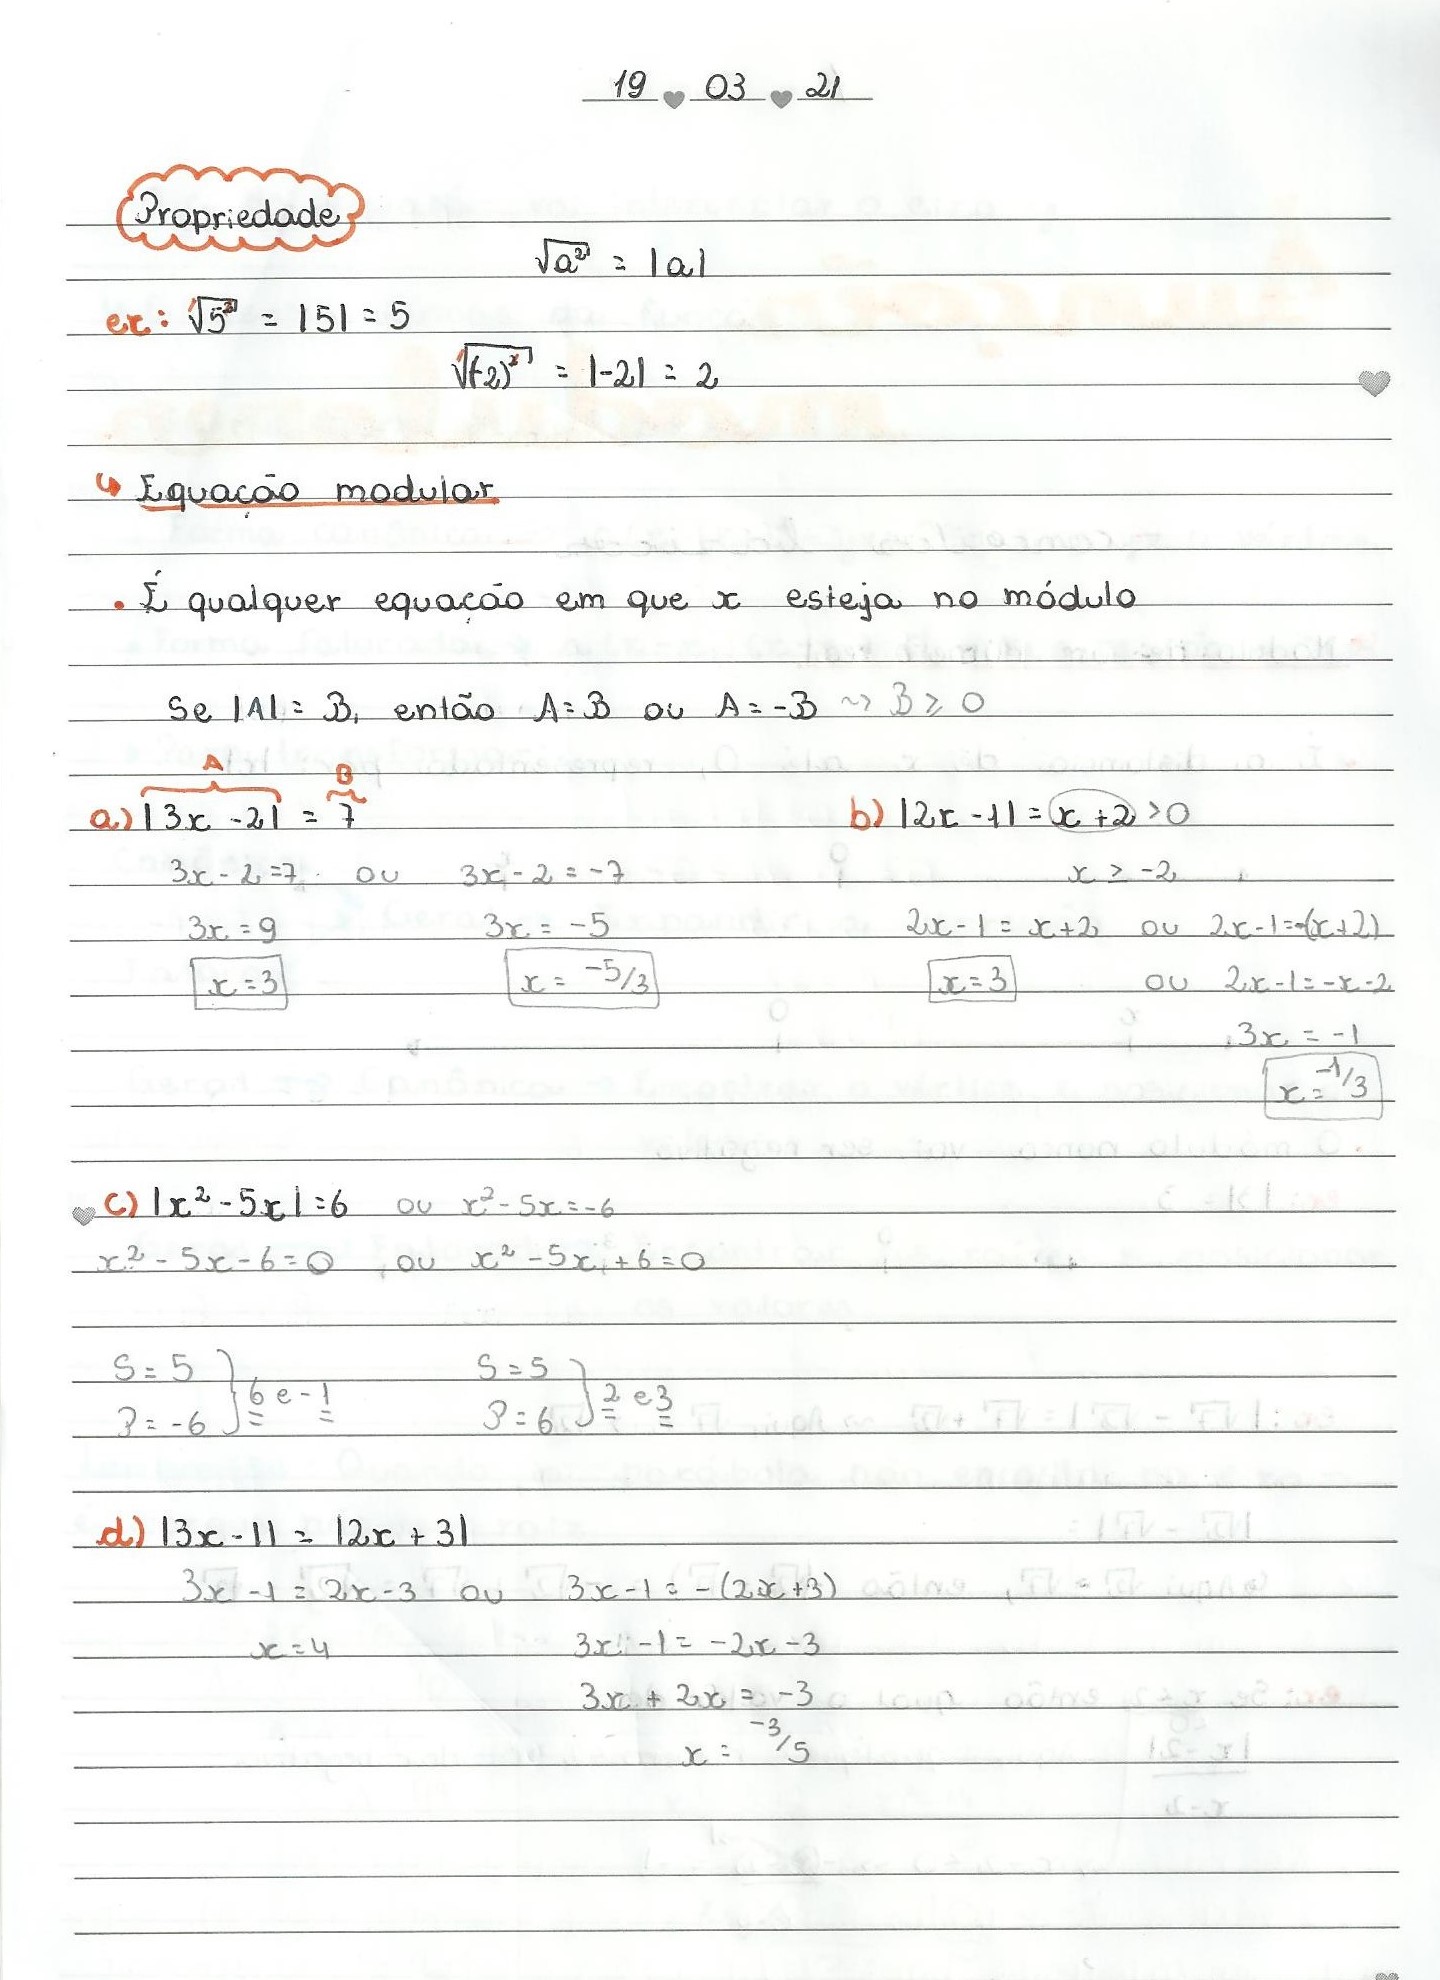 19 03 21
Propriedade
√a² = |a|
ex: √5² = |5| = 5
√(-2)² = |-2| = 2
↳ Equação modular
• É qualquer equação em que x esteja no módulo
Se |A| = B, então A = B ou A = -B ~> B ≥ 0
A B
a) |3x - 2| = 7 b) |2x - 1| = x + 2 > 0
3x - 2 = 7 ou 3x - 2 = -7 x ≥ -2
3x = 9 3x = -5 2x - 1 = x + 2 ou 2x - 1 = -(x + 2)
x = 3 x = -5/3 x = 3 ou 2x - 1 = -x - 2
3x = -1
x = -1/3
c) |x² - 5x| = 6 ou x² - 5x = -6
x² - 5x - 6 = 0 ou x² - 5x + 6 = 0
S = 5 S = 5
6 e -1 2 e 3
P = -6 P = 6
d) |3x - 1| = |2x + 3|
3x - 1 = 2x - 3 ou 3x - 1 = -(2x + 3)
x = 4 3x - 1 = -2x - 3
3x + 2x = -3
x = -3/5